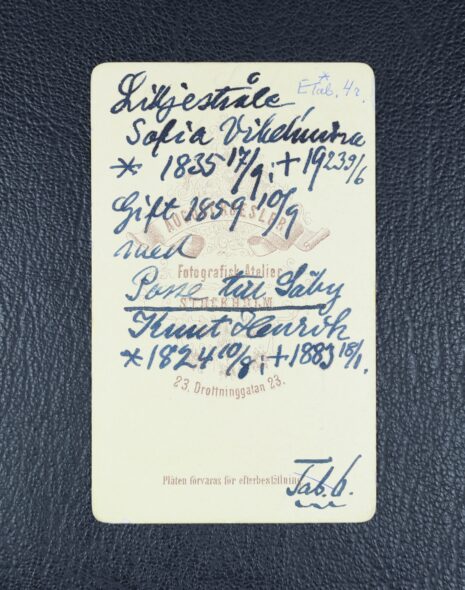 * Etab. 4r.
Liljestråle
Sofia Vilhelmina
* 1835 17/9; + 1923 9/6
Gift 1859 10/9
med
Fotografisk Atelier
Posse till Säby
STOCKHOLM
Knut Henrik
* 1824 10/8; + 1883 18/1.
23. Drottninggatan 23.
Plåten förvaras för efterbeställning
Tab. 6.